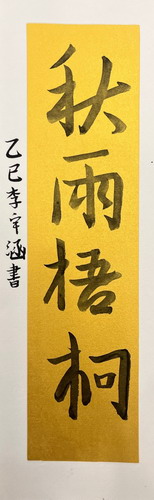 秋雨梧桐
乙巳李宇涵書